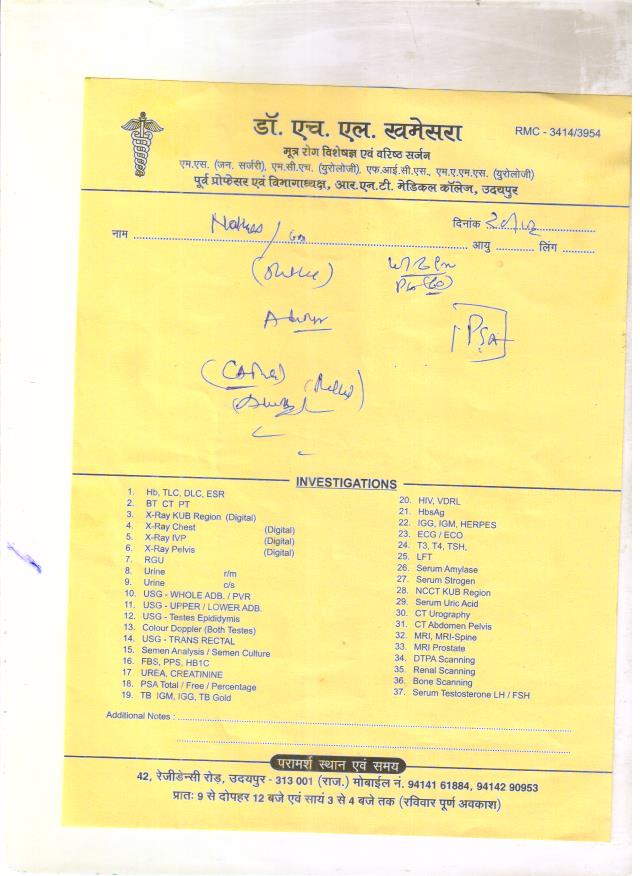 डॉ. एच. एल. खमेसरा
RMC - 3414/3954
मूत्र रोग विशेषज्ञ एवं वरिष्ठ सर्जन
एम.एस. (जन. सर्जरी), एम.सी.एच. (युरोलोजी), एफ.आई.सी.एस., एम.ए.एम.एस. (युरोलोजी)
पूर्व प्रोफेसर एवं विभागाध्यक्ष, आर.एन.टी. मेडिकल कॉलेज, उदयपुर
दिनांक
नाम आयु लिंग
PSA
INVESTIGATIONS
1. Hb, TLC, DLC, ESR
2. BT CT PT
3. X-Ray KUB Region (Digital)
4. X-Ray Chest (Digital)
5. X-Ray IVP (Digital)
6. X-Ray Pelvis (Digital)
7. RGU
8. Urine r/m
9. Urine c/s
10. USG - WHOLE ADB. / PVR
11. USG - UPPER / LOWER ADB.
12. USG - Testes Epididymis
13. Colour Doppler (Both Testes)
14. USG - TRANS RECTAL
15. Semen Analysis / Semen Culture
16. FBS, PPS, HB1C
17 UREA, CREATININE
18. PSA Total / Free / Percentage
19. TB IGM, IGG, TB Gold
20. HIV, VDRL
21. HbsAg
22. IGG, IGM, HERPES
23. ECG / ECO
24. T3, T4, TSH,
25. LFT
26. Serum Amylase
27. Serum Strogen
28. NCCT KUB Region
29. Serum Uric Acid
30. CT Urography
31. CT Abdomen Pelvis
32. MRI, MRI-Spine
33. MRI Prostate
34. DTPA Scanning
35. Renal Scanning
36. Bone Scanning
37. Serum Testosterone LH / FSH
Additional Notes :
परामर्श स्थान एवं समय
42, रेजीडेन्सी रोड़, उदयपुर - 313 001 (राज.) मोबाईल नं. 94141 61884, 94142 90953
प्रातः 9 से दोपहर 12 बजे एवं सायं 3 से 4 बजे तक (रविवार पूर्ण अवकाश)